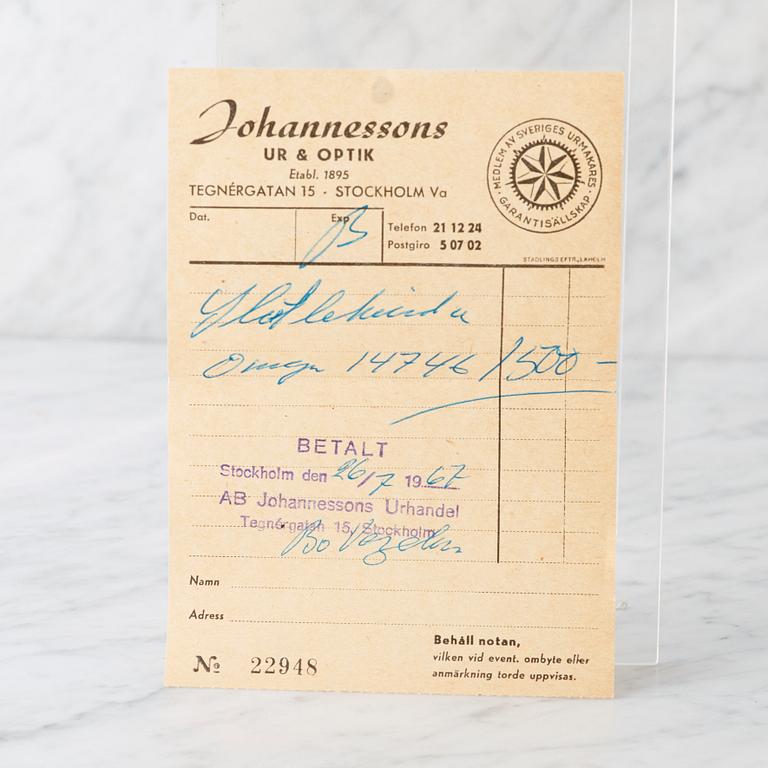 Johannessons
UR & OPTIK
Etabl. 1895
TEGNÉRGATAN 15 · STOCKHOLM Va
· MEDLEM AV SVERIGES URMAKARES · GARANTISÄLLSKAP
Dat.
Exp.
Telefon 21 12 24
Postgiro 5 07 02
STADLINGS EFTR., LAHOLM
Omega 14746 1500 –
BETALT
Stockholm den 26/7 1967
AB Johannessons Urhandel
Tegnérgatan 15, Stockholm
Bo
Namn
Adress
Behåll notan,
vilken vid event. ombyte eller
anmärkning torde uppvisas.
№ 22948